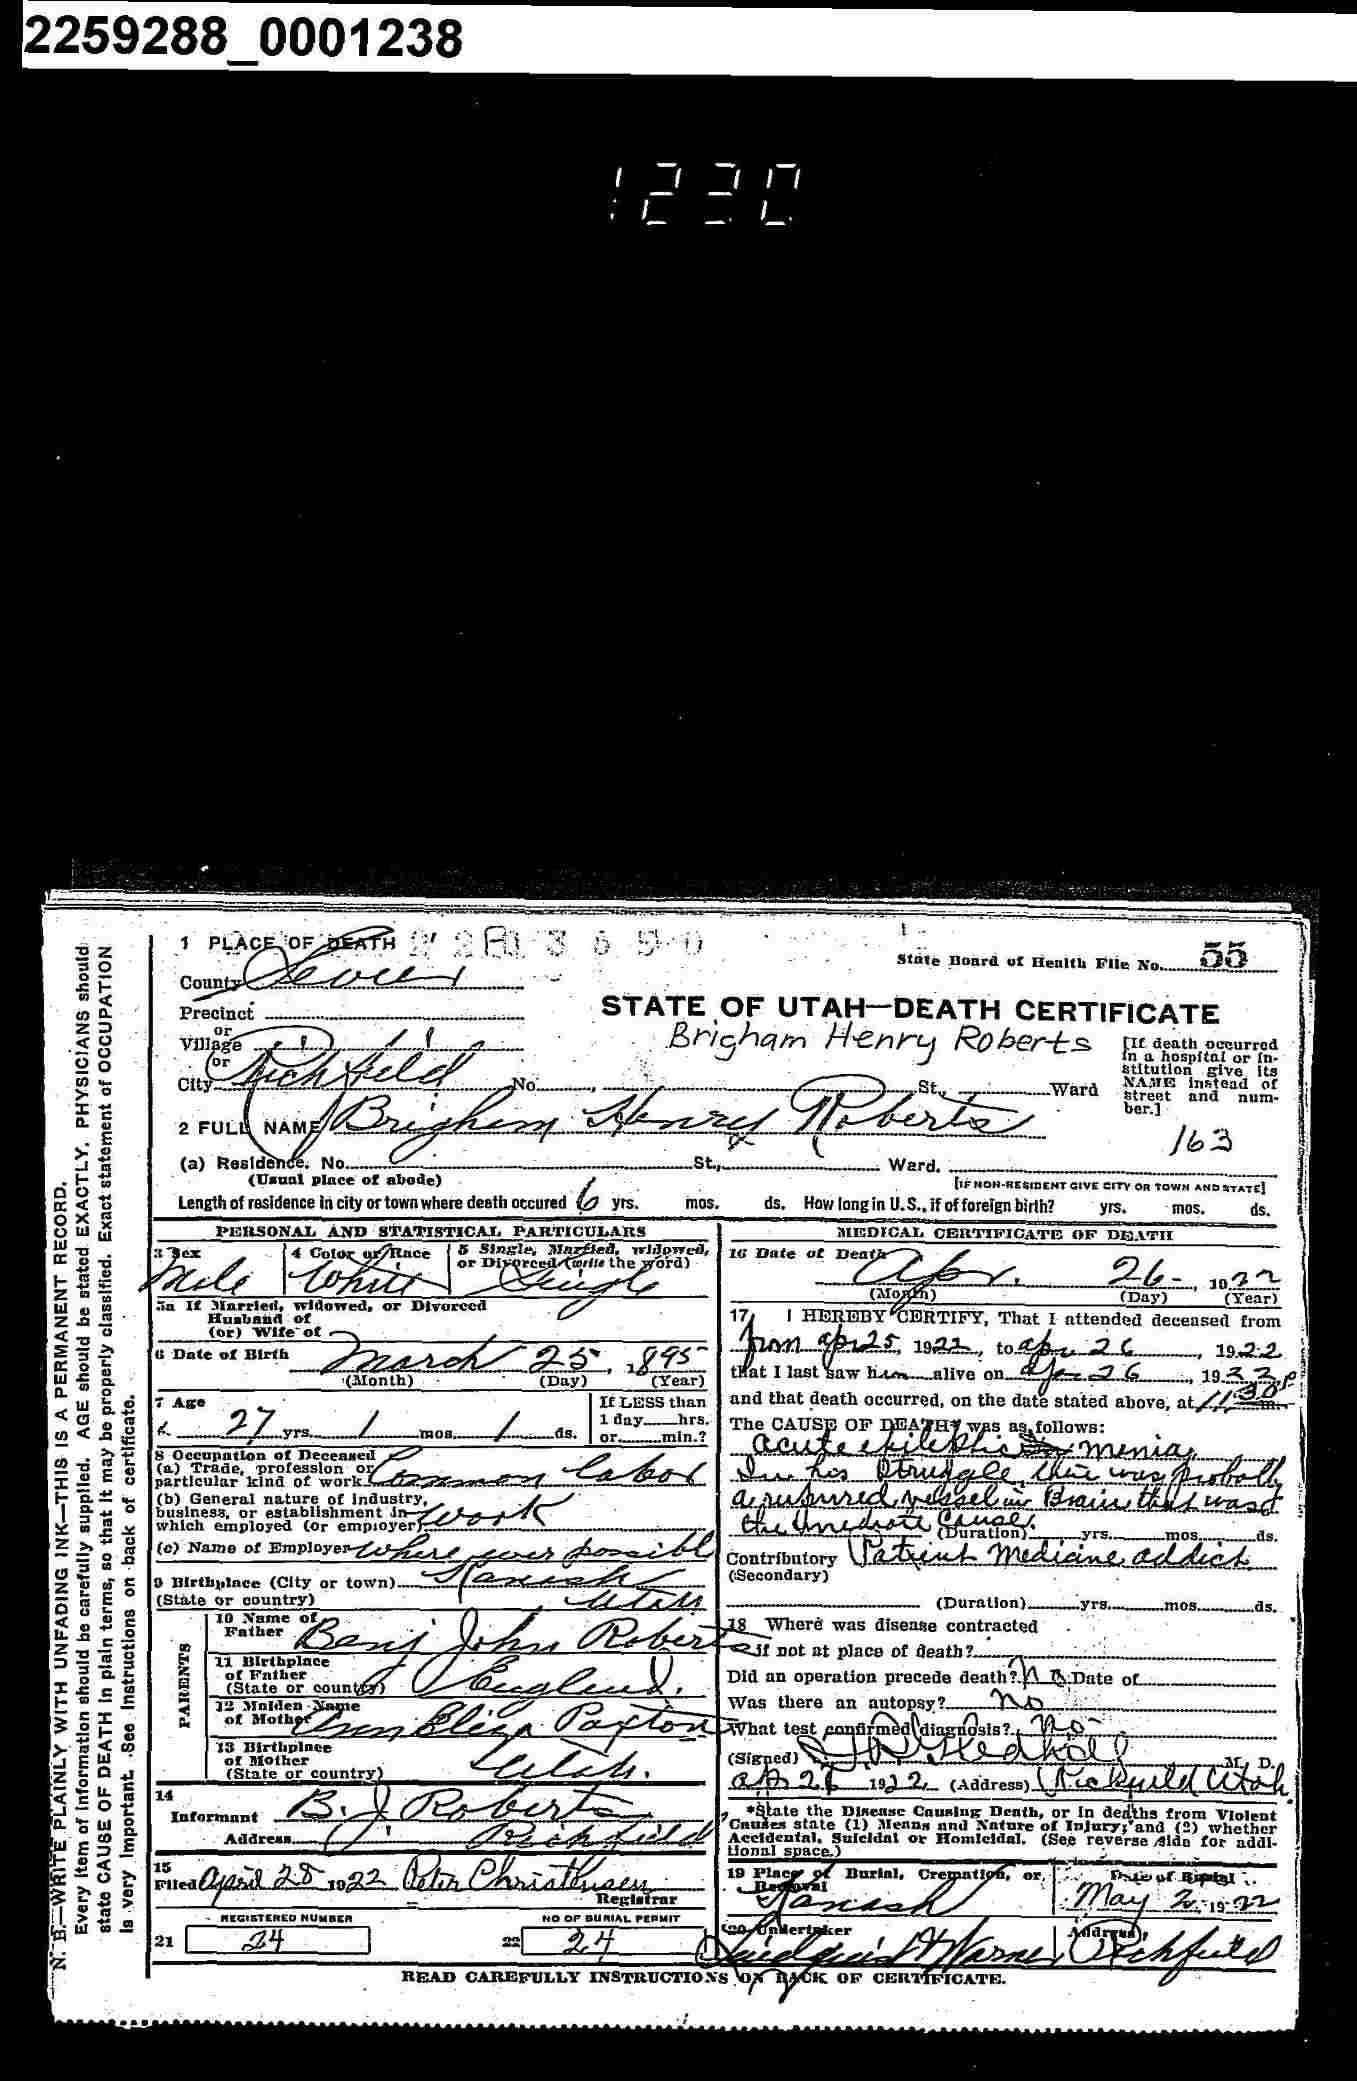 2259288_0001238
1230
1 PLACE OF DEATH
State Board of Health File No. 55
County Sevier
STATE OF UTAH—DEATH CERTIFICATE
Precinct
Brigham Henry Roberts
or
Village
or
City Richfield No. St., Ward
[If death occurred in a hospital or institution give its NAME instead of street and number.]
2 FULL NAME Brigham Henry Roberts
163
(a) Residence. No. St., Ward.
(Usual place of abode)
[IF NON-RESIDENT GIVE CITY OR TOWN AND STATE]
Length of residence in city or town where death occured 6 yrs. mos. ds. How long in U.S., if of foreign birth? yrs. mos. ds.
PERSONAL AND STATISTICAL PARTICULARS
3 Sex
Male
4 Color or Race
White
5 Single, Married, widowed, or Divorced (write the word)
Single
5a If Married, widowed, or Divorced
Husband of
(or) Wife of
6 Date of Birth March 25, 1895
(Month) (Day) (Year)
7 Age
27 yrs. 1 mos. 1 ds.
If LESS than
1 day hrs.
or min.?
8 Occupation of Deceased
(a) Trade, profession or
particular kind of work Common labor
(b) General nature of industry,
business, or establishment in
which employed (or employer) work
(c) Name of Employer where ever possibl
9 Birthplace (City or town) Kanosh
(State or country) Utah
PARENTS
10 Name of
Father Benj John Roberts
11 Birthplace
of Father
(State or country) England.
12 Maiden Name
of Mother Ann Eliza Paxton
13 Birthplace
of Mother
(State or country) Utah.
14
Informant B. J Roberts
Address Richfield
15
Filed April 28 1922 Peter Christensen
Registrar
REGISTERED NUMBER
21 24
NO OF BURIAL PERMIT
22 24
MEDICAL CERTIFICATE OF DEATH
16 Date of Death Apr. 26 - 1922
(Month) (Day) (Year)
17 I HEREBY CERTIFY, That I attended deceased from
from apr 25, 1922, to apr 26, 1922
that I last saw him alive on apr 26, 1922
and that death occurred, on the date stated above, at 11 30 P m.
The CAUSE OF DEATH* was as follows:
acute epileptic menia,
In his struggle there was probally
a rupured vessel in Brain that was
the Imediate Cause.
(Duration) yrs. mos. ds.
Contributory Patient Medicine addict
(Secondary)
(Duration) yrs. mos. ds.
18 Where was disease contracted
if not at place of death?
Did an operation precede death? No Date of
Was there an autopsy? no
What test confirmed diagnosis? no
(Signed) M. D.
ap 26 1922 (Address) Richfield Utah.
*State the Disease Causing Death, or in deaths from Violent
Causes state (1) Means and Nature of Injury; and (2) whether
Accidental, Suicidal or Homicidal. (See reverse side for addi-
tional space.)
19 Place of Burial, Cremation, or
Removal
Kanosh
Date of Burial
May 2, 1922
20 Undertaker
Address
Richfield
READ CAREFULLY INSTRUCTIONS ON BACK OF CERTIFICATE.
N. B.—WRITE PLAINLY WITH UNFADING INK—THIS IS A PERMANENT RECORD.
Every item of information should be carefully supplied. AGE should be stated EXACTLY. PHYSICIANS should
state CAUSE OF DEATH in plain terms, so that it may be properly classified. Exact statement of OCCUPATION
is very important. See instructions on back of certificate.